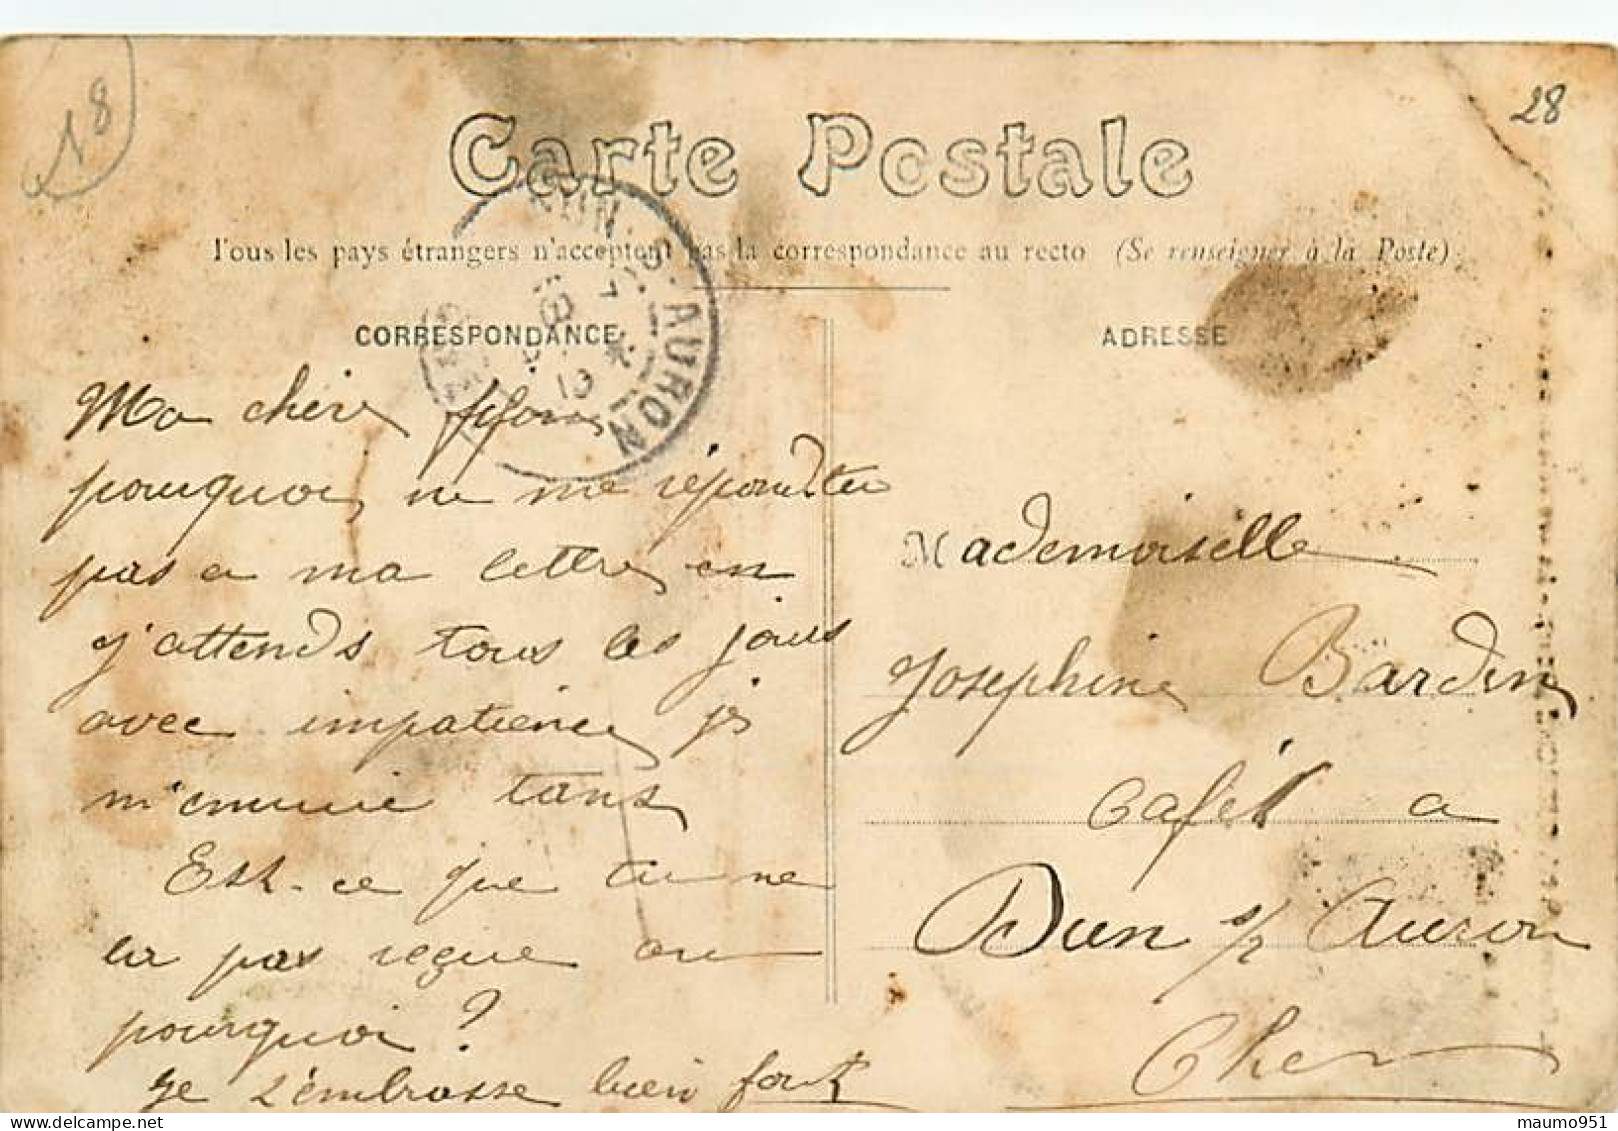 18
28
Carte Postale
Tous les pays étrangers n'acceptent pas la correspondance au recto (Se renseigner à la Poste)
DUN-S-AURON
CORRESPONDANCE
Ma chère
pourquoi ne me réponds tu
pas a ma lettre en
j'attends tous les jours
avec impatience je
m'ennuie tans
Est-ce que tu ne
la pas reçue ou
pourquoi ?
Je t'embrasse bien fort
ADRESSE
Mademoiselle
Josephine Bardin
Café a
Dun s/ Auron
Cher
maumo951